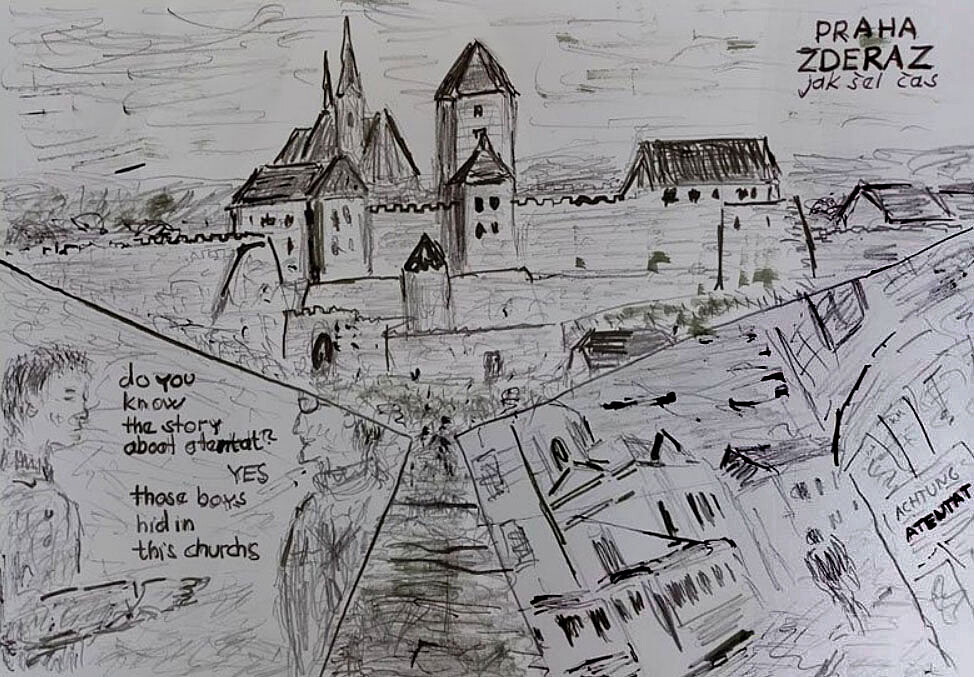 PRAHA
ZDERAZ
jak šel čas
do you
know
the story
about atentat?
YES
those boys
hid in
this churchs
ACHTUNG
ATENTAT